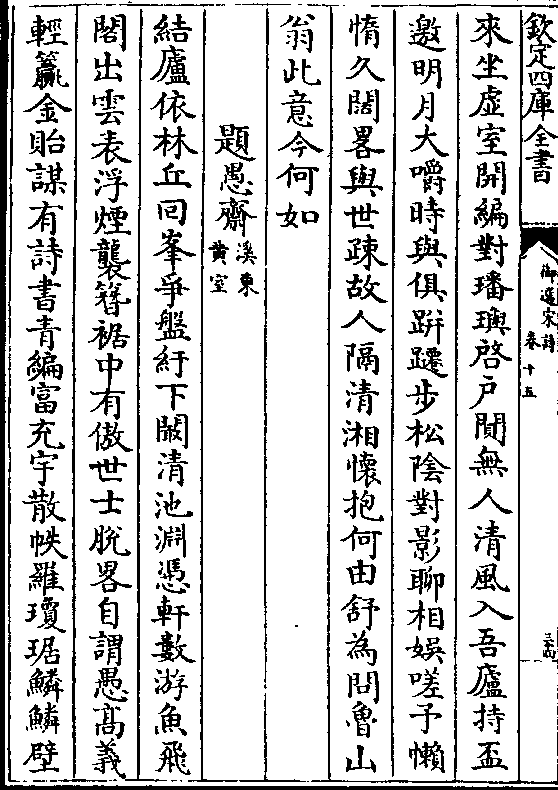 欽定四庫全書
御選宋詩
卷十五
來坐虛室開編對璠璵啓戶閴無人清風入吾廬持盃
邀明月大嚼時與俱跰躚步松陰對影聊相娱嗟予懶
惰久闊畧與世疎故人隔清湘懷抱何由舒為問魯山
翁此意今何如
題愚齋溪東黄室
結廬依林丘回峯爭盤紆下闞清池淵憑軒數游魚飛
閣出雲表浮煙襲簪裾中有傲世士脫畧自謂愚高義
輕籯金貽謀有詩書青編富充宇散帙羅瓊琚鱗鱗壁